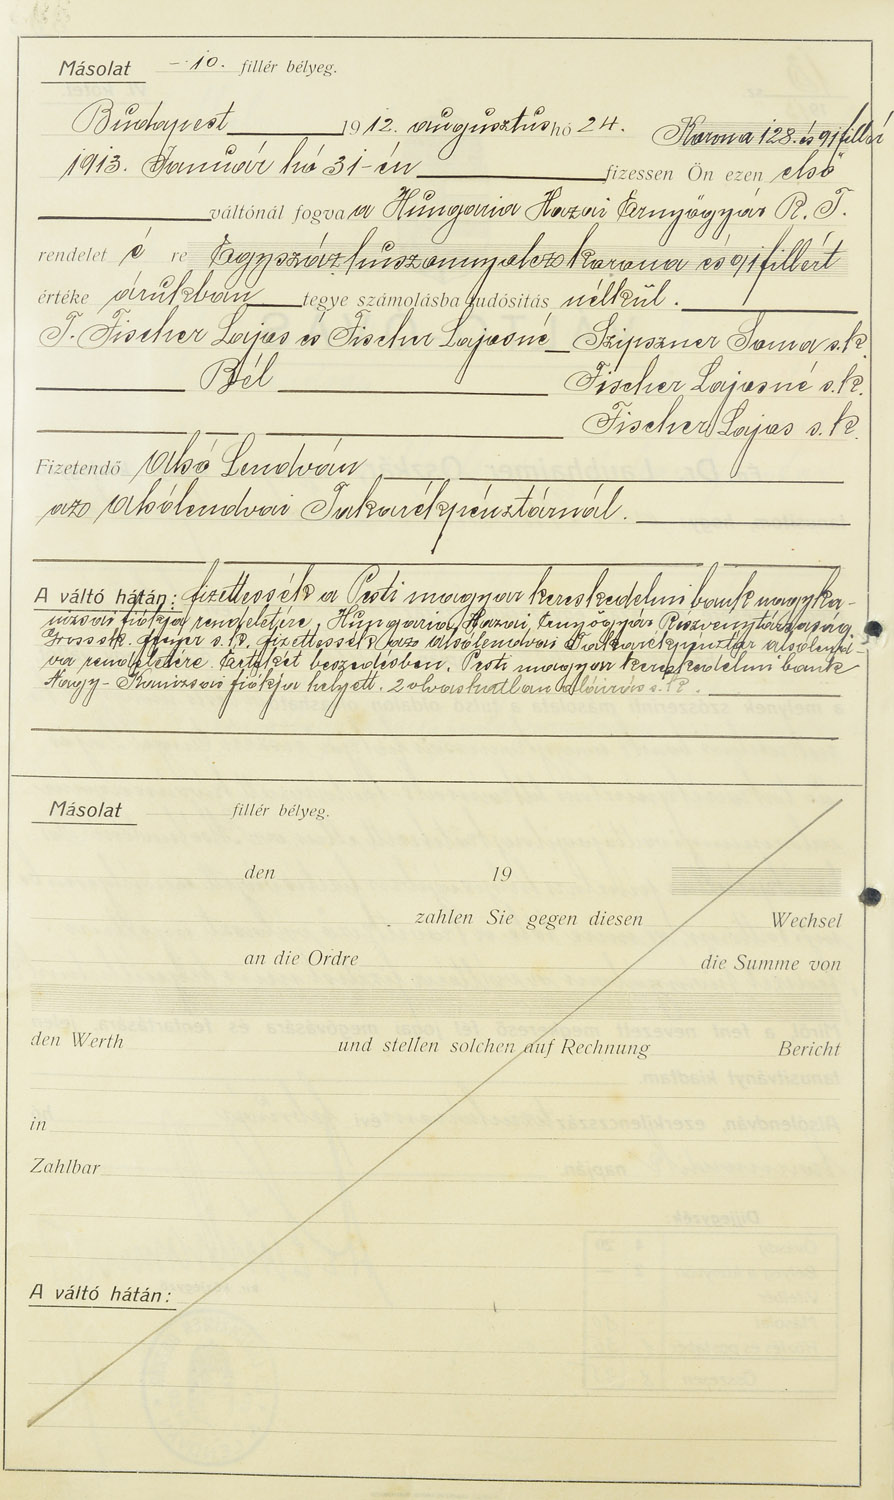 Másolat -10. fillér bélyeg.
Budapest 1912. augusztus hó 24. Korona 128. és 91 fillér
1913. Január hó 31-én fizessen Ön ezen első
váltónál fogva a Hungaria Hazai Ernyőgyár R. T.
rendelet é re Egyszázhuszonnyolcz korona és 91 fillért
értéke árukban tegye számolásba tudósitás nélkül.
T. Fischer Lajos és Fischer Lajosné Szipszner Soma s.k.
Bél Fischer Lajosné s.k.
Fischer Lajos s.k.
Fizetendő Alsó Lendván
az Alsólendvai Takarékpénztárnál.
A váltó hátán: fizettessék a Pesti magyar kereskedelmi bank nagyka-
nizsai fiókja rendeletére, Hungaria Hazai Ernyőgyár Részvénytársaság
s.k. fizettessék az alsólendvai Takarékpénztár alsólend-
va rendeletére. Értéket beszedésben. Pesti magyar kereskedelmi bank
Nagy-Kanizsai fiókja helyett. 2 olvashatlan aláírás s.k.
Másolat fillér bélyeg.
den 19
zahlen Sie gegen diesen Wechsel
an die Ordre die Summe von
den Werth und stellen solchen auf Rechnung Bericht
in
Zahlbar
A váltó hátán: